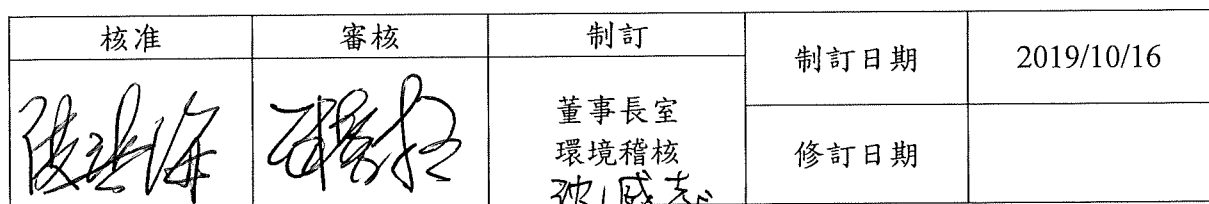 核准 審核 制訂 制訂日期 2019/10/16
董事長室
環境稽核
修訂日期